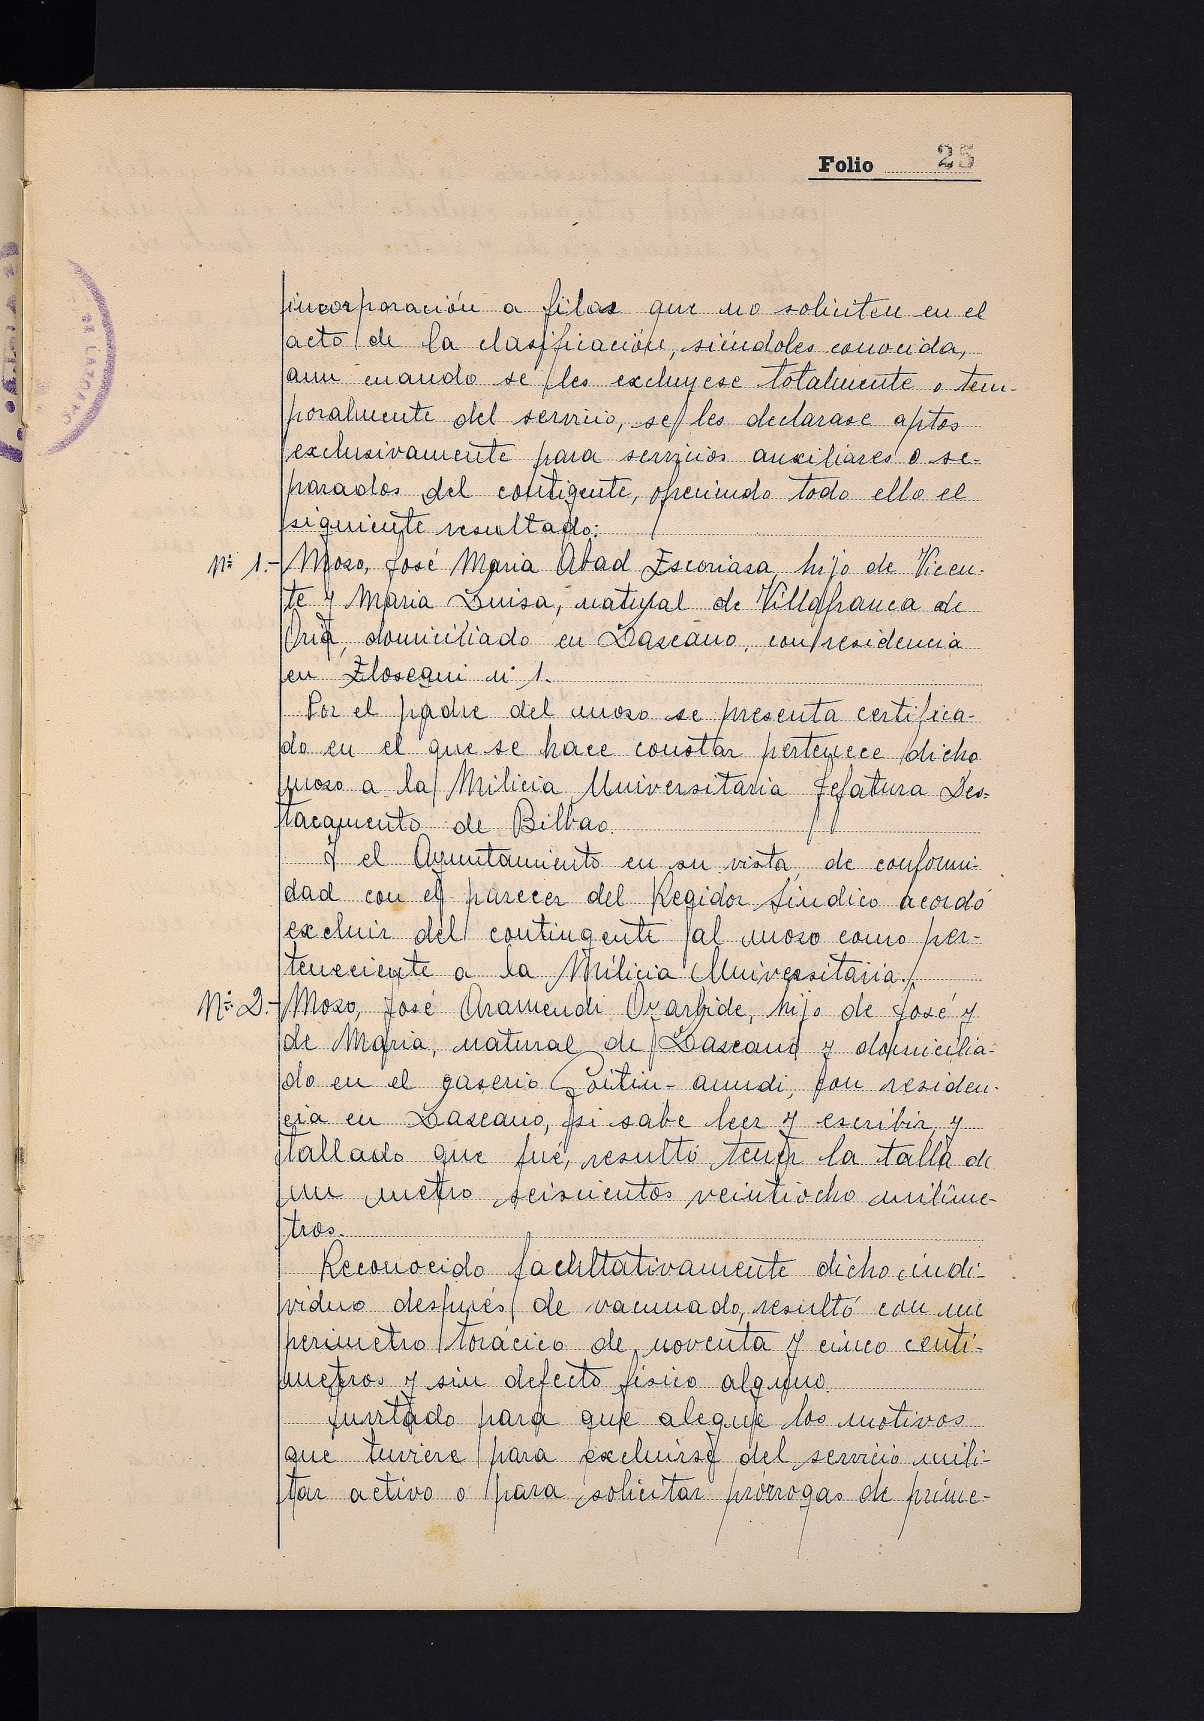 Folio 25
incorporación a filas que no soliciten en el
acto de la clasificación, siéndoles conocida,
aun cuando se les excluyese totalmente o tem-
poralmente del servicio, se les declarase aptos
exclusivamente para servicios auxiliares o se-
parados del contigente, ofreciendo todo ello el
siguiente resultado:
Nº 1.- Mozo, José Maria Abad Escoriaza, hijo de Vicen-
te y Maria Luisa, natural de Villafranca de
Oria, domiciliado en Lazcano, con residencia
en Elosegui nº 1.
Por el padre del mozo se presenta certifica-
do en el que se hace constar pertenece dicho
mozo a la Milicia Universitaria Jefatura Des-
tacamento de Bilbao.
Y el Ayuntamiento en su vista, de conformi-
dad con el parecer del Regidor Síndico acordó
excluir del contingente al mozo como per-
teneciente a la Milicia Universitaria.
Nº 2.- Mozo, José Aramendi Ozarbide, hijo de José y
de Maria, natural de Lazcano y domicilia-
do en el caserio Goitin-aundi, con residen-
cia en Lazcano, si sabe leer y escribir, y
tallado que fué, resultó tener la talla de
un metro seiscientos veintiocho milime-
tros.
Reconocido facultativamente dicho indi-
viduo después de vacunado, resultó con un
perimetro torácico de noventa y cinco centi-
metros y sin defecto físico alguno.
Invitado para que alegue los motivos
que tuviere para excluirse del servicio mili-
tar activo o para solicitar prórrogas de prime-